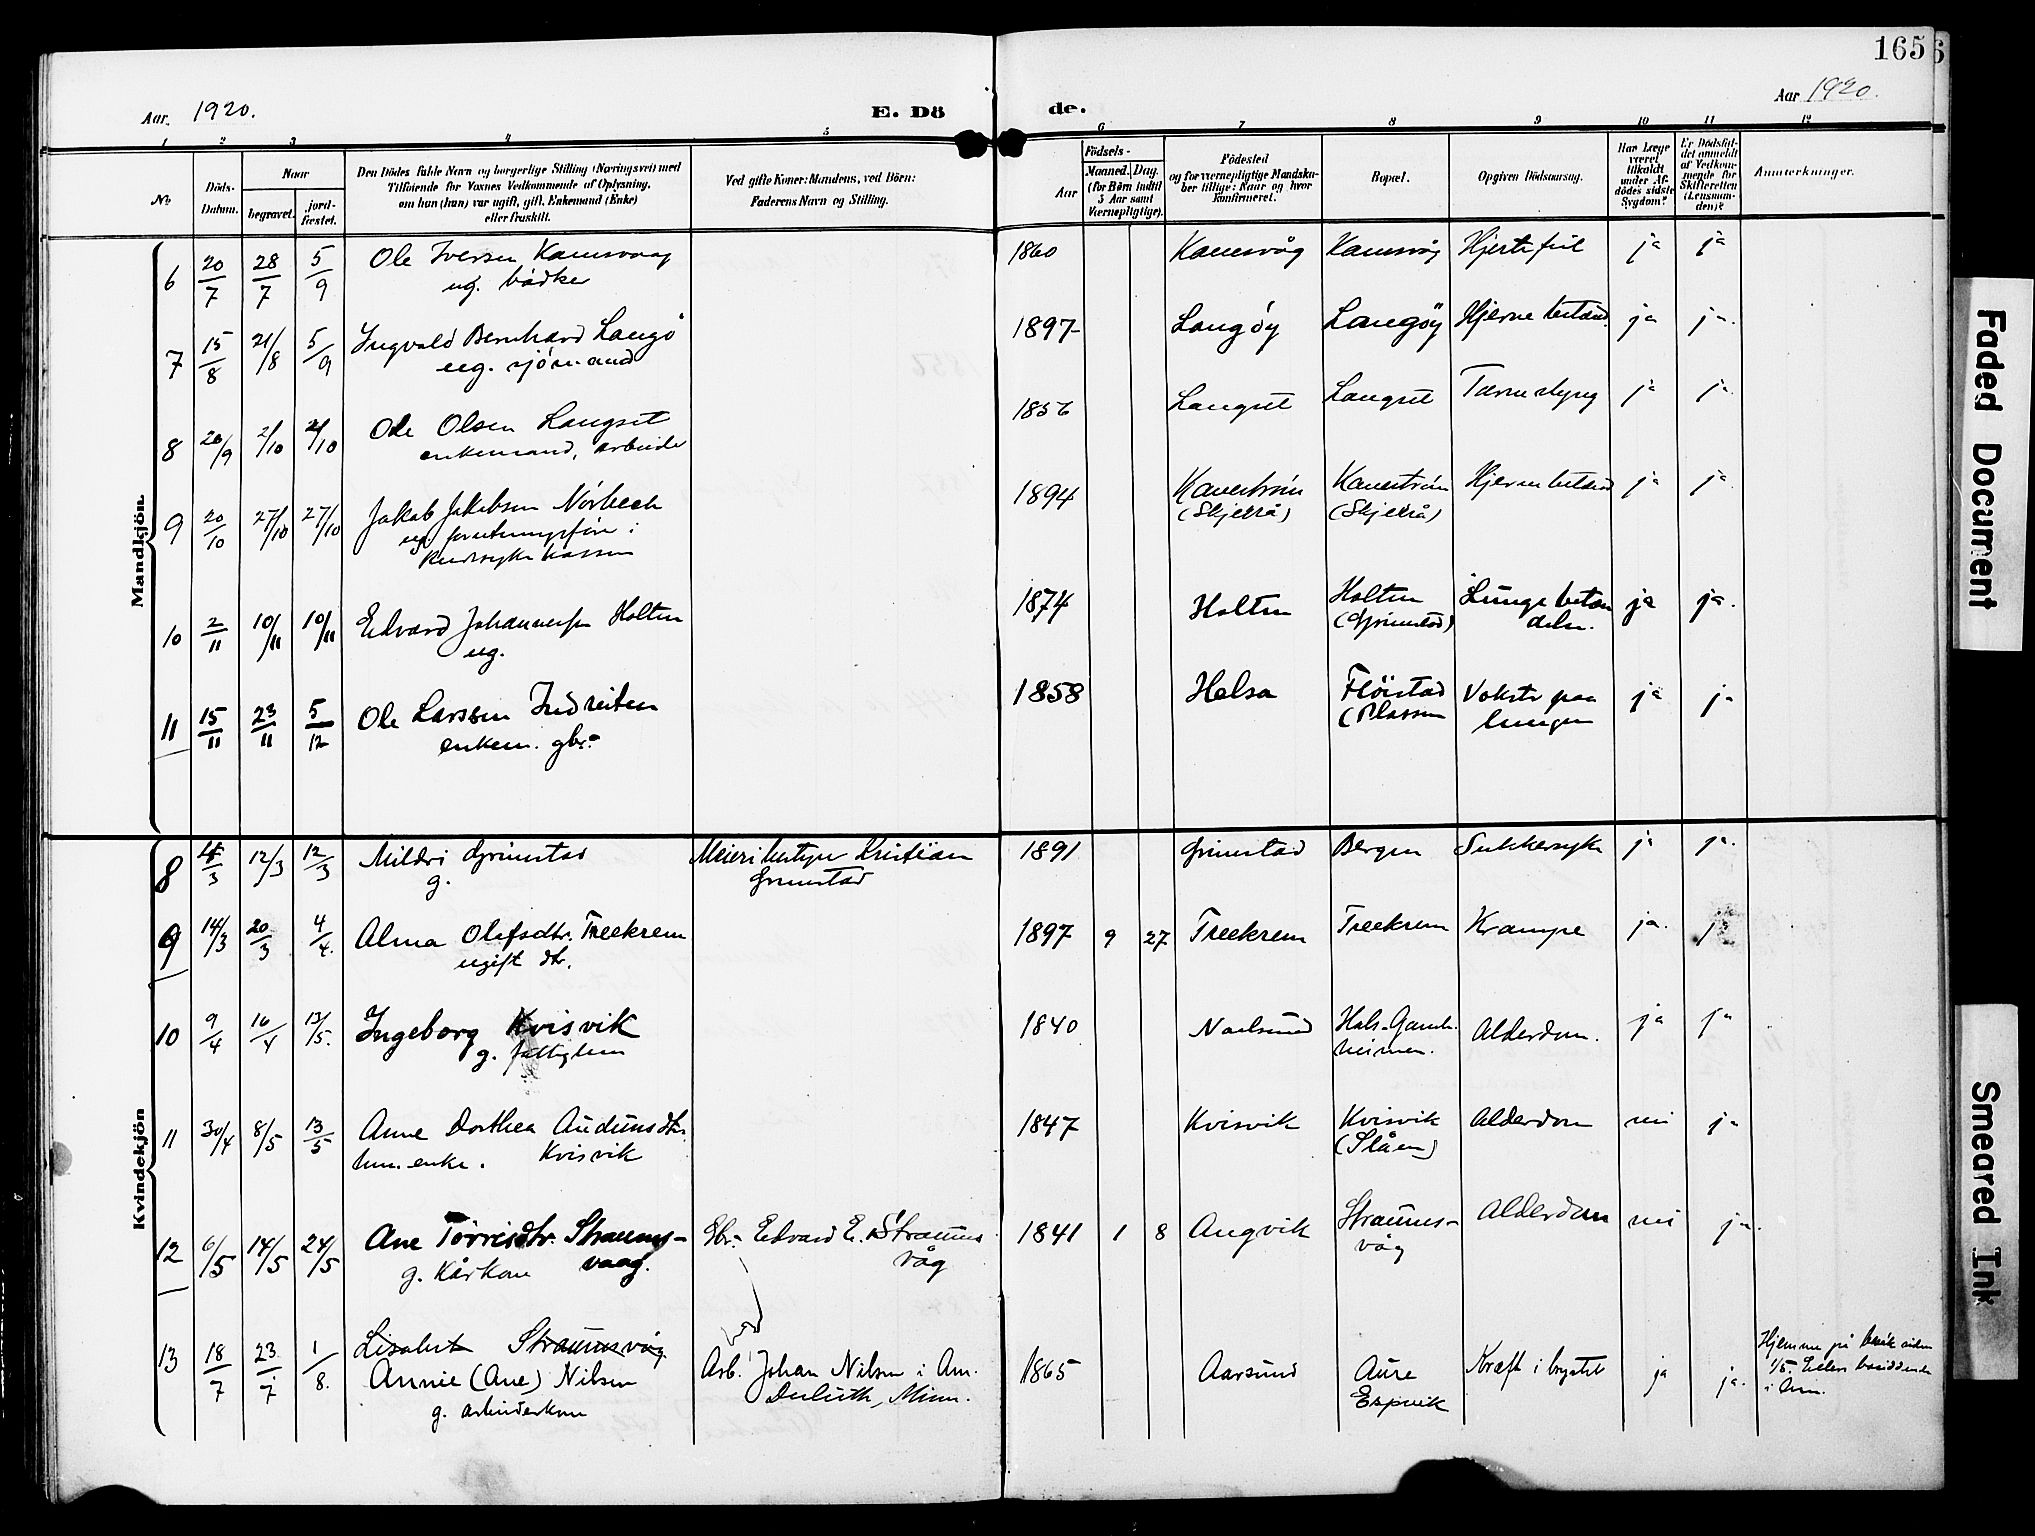 165
Aar. 1920.
E. Dö
de.
Aar 1920.
1 2 3 4 5 6 7 8 9 10 11 12
No
Döds-Datum.
Naar
begravet.
jordfæstet.
Den Dödes fulde Navn og borgerlige Stilling (Næringsvei) med
Tilföiende for Voxnes Vedkommende af Oplysning,
om han (hun) var ugift, gift, Enkemand (Enke)
eller fraskilt.
Ved gifte Koner: Mandens, ved Börn:
Faderens Navn og Stilling.
Födsels-
Aar
Maaned. Dag.
(for Börn indtil
3 Aar samt
Værnepligtige).
Födested
og for værnepligtige Mandskaber tillige: Naar og hvor
konfirmeret.
Bopæl.
Opgiven Dödsaarsag.
Har Læge
været
tilkaldt
under Afdödes sidste
Sygdom?
Er Dödsfaldet anmeldt
af Vedkommende for
Skifteretten
(Lensmanden)?
Anmerkninger.
Mandkjön
6 20/7 28/7 5/9 Ole Iversen Kamsvaag 1860 Kamsvåg Kamsvåg Hjertefeil ja ja
ug. bödker
7 15/8 21/8 5/9 Ingvald Bernhard Langö 1897 Langöy Langöy Hjernebetænd. ja ja.
ug. sjömand
8 26/9 2/10 2/10 Ole Olsen Langset 1856 Langset Langset Tarmslyng ja ja.
enkemand, arbeider
9 20/10 27/10 27/10 Jakob Jakobsen 1894 Hjernebetænd ja ja
(Skjelrå) (Skjelrå)
ug.
10 2/11 10/11 10/11 Edvard Johannesen Holten 1874 Holten Holten Lungebetæn ja ja.
ug. (Grimstad) delse.
11 15/11 23/11 5/12 Ole Larssen Indreiten 1858 Halsa Flöistad Vekst paa ja ja
enkem. gbr. (Plassen lungen
Kvindekjön
8 3 12/3 12/3 Mildri Grimstad Meieribestyr Kristian 1891 Grimstad Bergen Sukkersyke ja ja.
g. Grimstad
9 14/3 20/3 4/4. Alma Olefsdtr. Treekrem 1897 9 27 Treekrem Treekrem Krampe ja. ja
ugift dtr.
10 9/4 16/4 13/5. Ingeborg Kvisvik 1840 Hals-Gamleheimen. Alderdom. ja ja
g. fattiglem
11 30/4 8/5 13/5 Anne Dorthea Audunsdtr. 1847 Kvisvik Kvisvik Alderdom nei ja
enke. Kvisvik (Slåen)
12 6/5 14/5 24/5 Ane Törrisdtr. Straums- Gbr. Edvard E. Straums 1841 1 8 Angvik Straums- Alderdom nei ja.
g. Kårkone vaag. våg våg
13 18/7 23/7 1/8. Lisabet Straumsvåg
Annie (Ane) Nilsen Arb. Johan Nilsen i Am. 1865 Aarsund Aure Kræft i brystet ja ja.
g. arbeiderkone Duluth, Minn. Espvik
Hjemme på besök siden
1/5 Ellers boiddende
i Am.
Faded Document
Smeared Ink